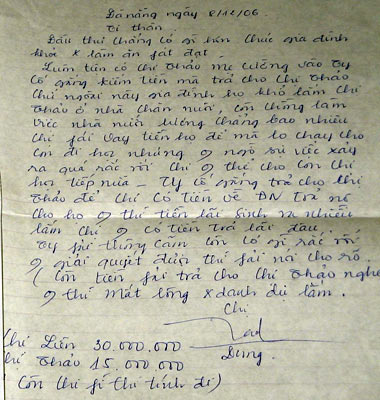 Đà nẵng ngày 8/12/06.
Tí thân
Đầu thư chẳng có gì hơn chúc gia đình
khỏe x làm ăn fát đạt.
Luôn tiện có Chị Thảo mẹ cường vào Ty
cố gắng kiếm tiền mà trả cho Chị Thảo
Chứ ngoài nầy gia đình họ khổ lắm Chị
Thảo ở nhà chăn nuôi, còn chồng làm
việc nhà nước lương chẳng bao nhiêu
Chị fải vay tiền họ để mà lo chạy cho
con đi học nhưng ngờ sự việc xảy
ra quá rắc rối Chị thể cho con Chị
học tiếp nữa - Ty cố gắng trả cho Chị
Thảo để Chị có tiền về ĐN trả nợ
cho họ thì tiền lãi sinh ra nhiều
lắm Chị có tiền trả lãi đâu.
Ty fải thông cảm còn có gì rắc rối
giải quyết được thì fải nói cho rõ.
(Còn tiền fải trả cho Chị Thảo nghe
thì mất lòng x danh dự lắm.
Chị
Dung.
Chị Liên 30.000.000
Chị Thảo 15.000.000
Còn Chị thì tính đi)